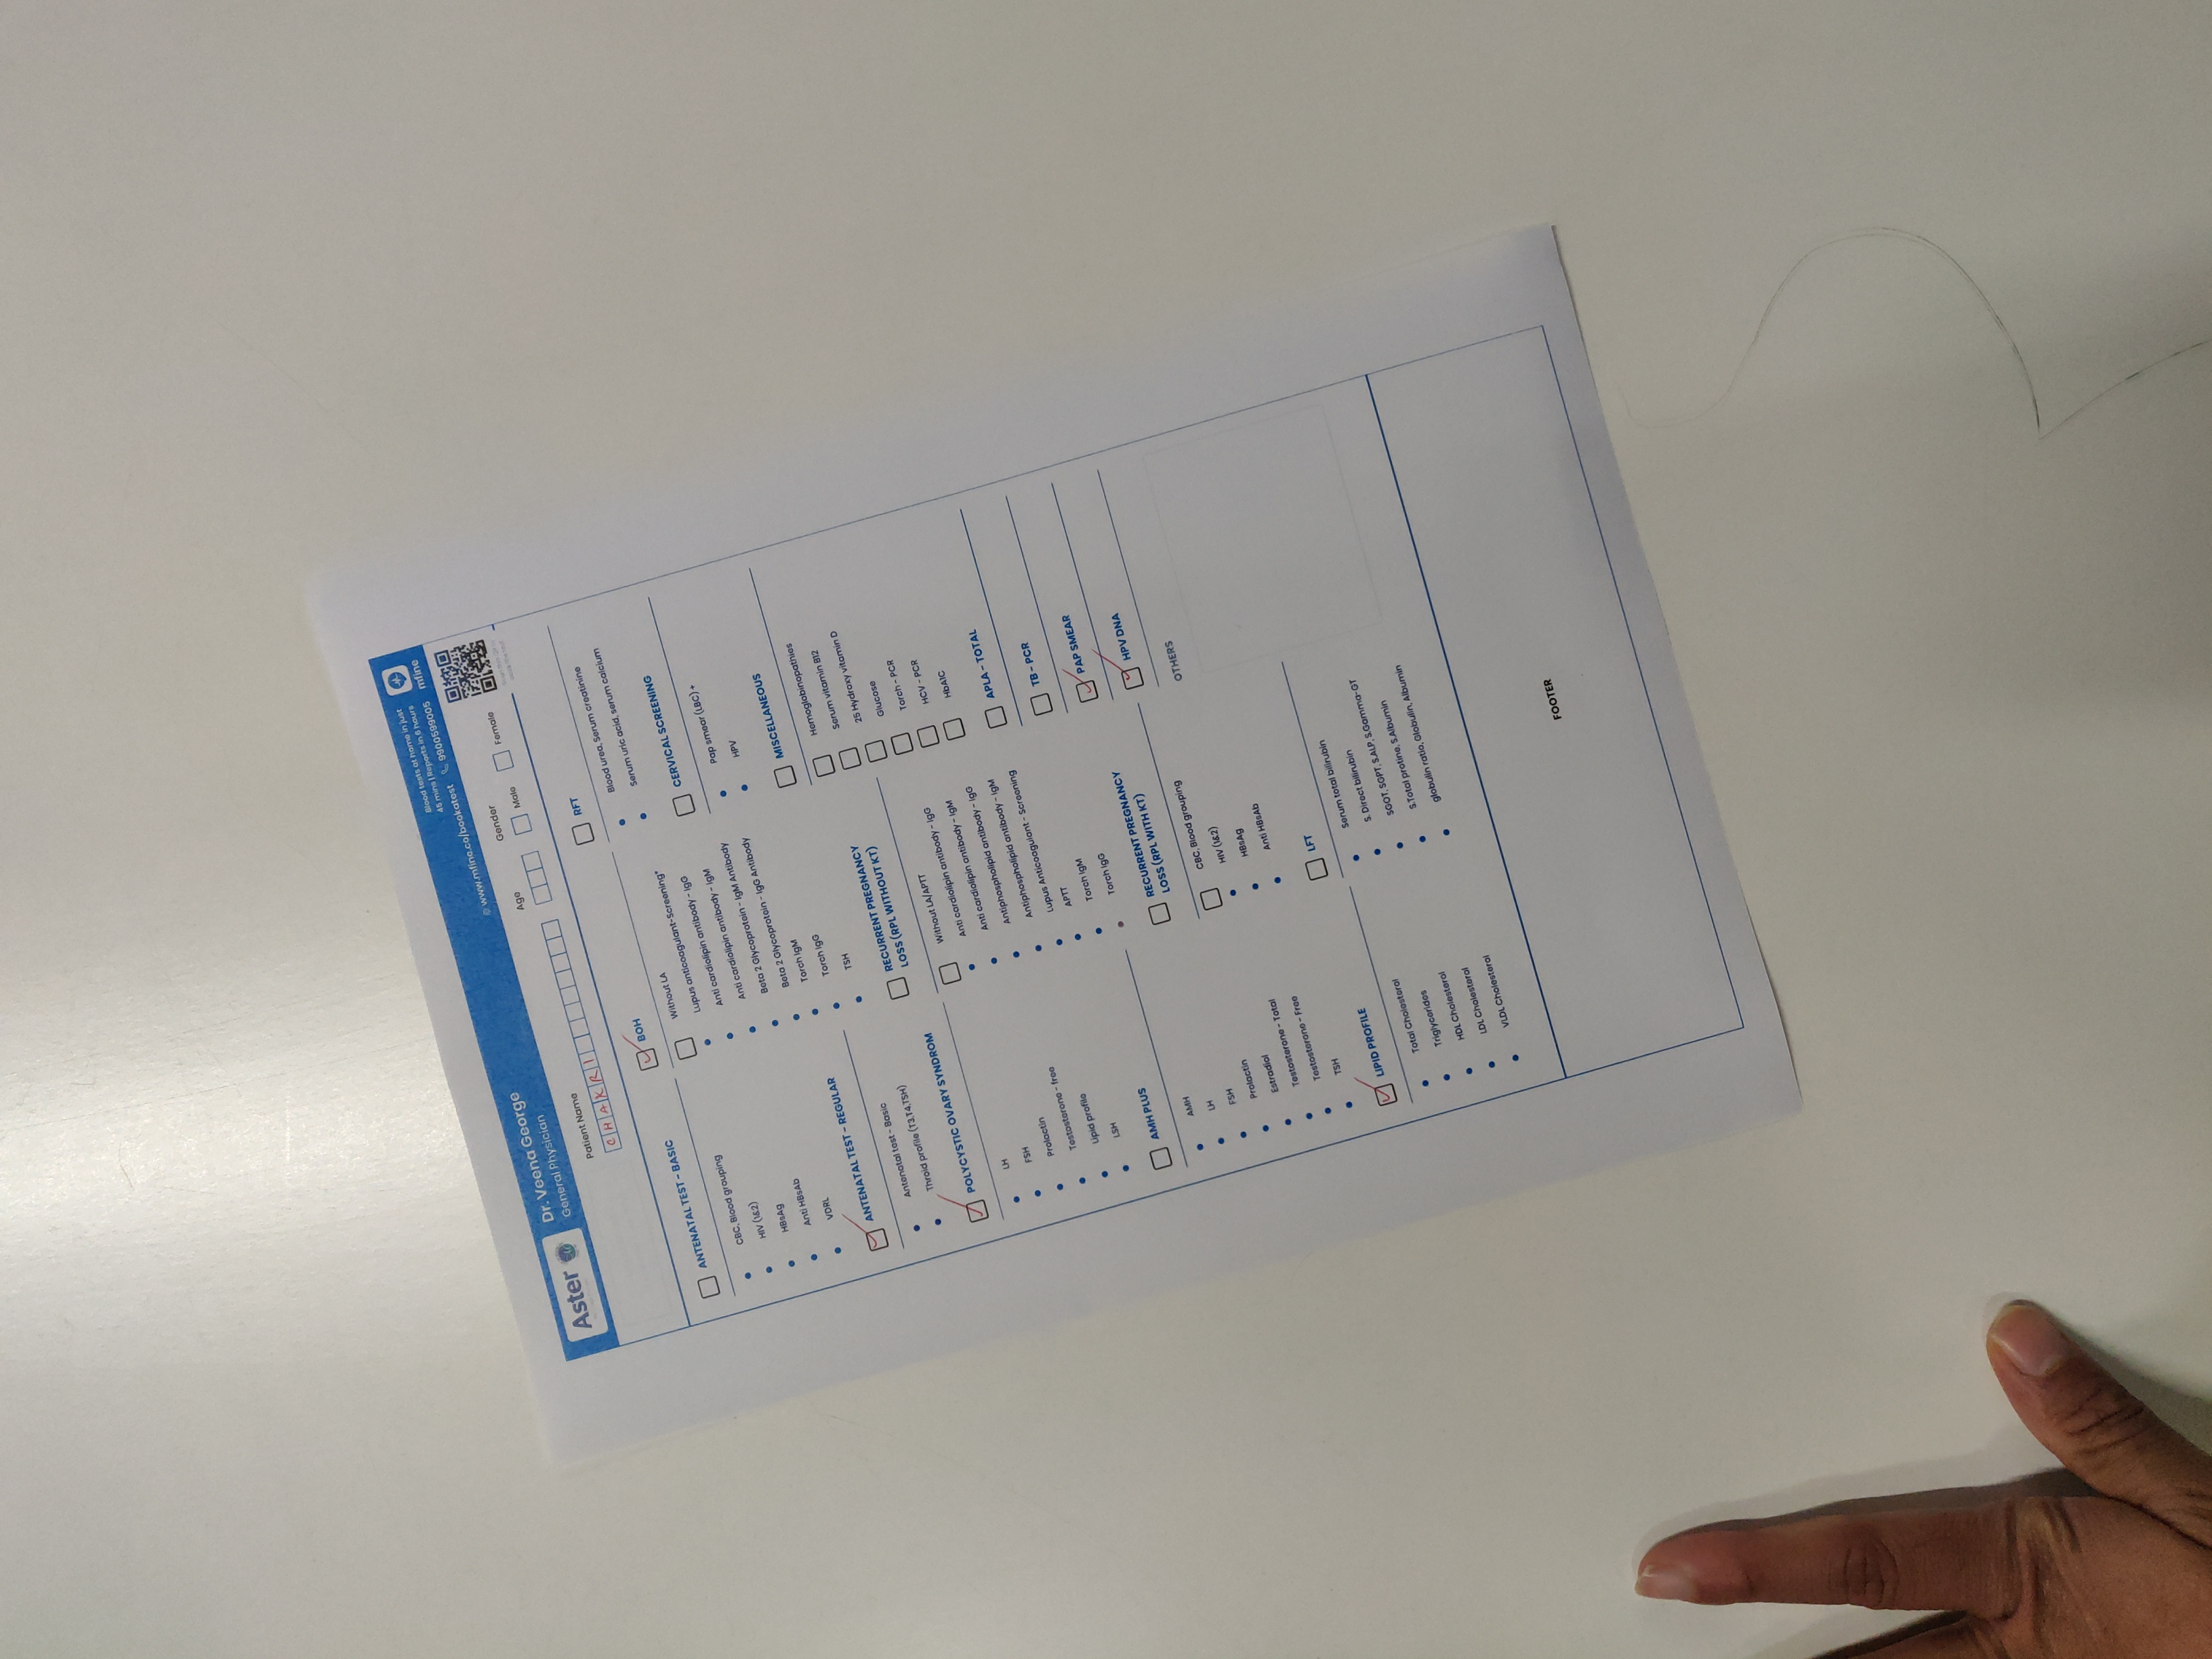 Aster
Dr. Veena George
General Physician
Blood tests at home in just
45 mins | Reports in 6 hours
www.mfine.co/bookatest 9900599005
mfine
Patient Name
CHAKRI
Age
Gender
Male
Female
ANTENATAL TEST - BASIC
CBC, Blood grouping
HIV (1&2)
HBsAg
Anti HBsAb
VDRL
ANTENATAL TEST - REGULAR
Antenatal test - Basic
Throid profile (T3,T4,TSH)
POLYCYSTIC OVARY SYNDROM
LH
FSH
Prolactin
Testosterone - free
Lipid profile
LSH
AMH PLUS
AMH
LH
FSH
Prolactin
Estradiol
Testosterone - Total
Testosterone - Free
TSH
LIPID PROFILE
Total Cholesterol
Triglycerides
HDL Cholesterol
LDL Cholesterol
VLDL Cholesterol
BOH
Without LA
Lupus anticoagulant-Screening*
Anti cardiolipin antibody - IgG
Anti cardiolipin antibody - IgM
Beta 2 Glycoprotein - IgM Antibody
Beta 2 Glycoprotein - IgG Antibody
Torch IgM
Torch IgG
TSH
RECURRENT PREGNANCY
LOSS (RPL WITHOUT KT)
Without LA/APTT
Anti cardiolipin antibody - IgG
Anti cardiolipin antibody - IgM
Antiphospholipid antibody - IgG
Antiphospholipid antibody - IgM
Lupus Anticoagulant - Screening
APTT
Torch IgM
Torch IgG
RECURRENT PREGNANCY
LOSS (RPL WITH KT)
CBC, Blood grouping
HIV (1&2)
HBsAg
Anti HBsAb
LFT
Serum total bilirubin
S. Direct bilirubin
SGOT, SGPT, S.ALP, S.Gamma-GT
S.Total protine, S.Albumin
globulin ratio, Globulin, Albumin
RFT
Blood urea, Serum creatinine
Serum uric acid, serum calcium
CERVICAL SCREENING
Pap smear (LBC) +
HPV
MISCELLANEOUS
Hemoglobinopathies
Serum vitamin B12
25 Hydroxy vitamin D
Glucose
Torch - PCR
HCV - PCR
HbA1C
APLA - TOTAL
TB - PCR
PAP SMEAR
HPV DNA
OTHERS
FOOTER